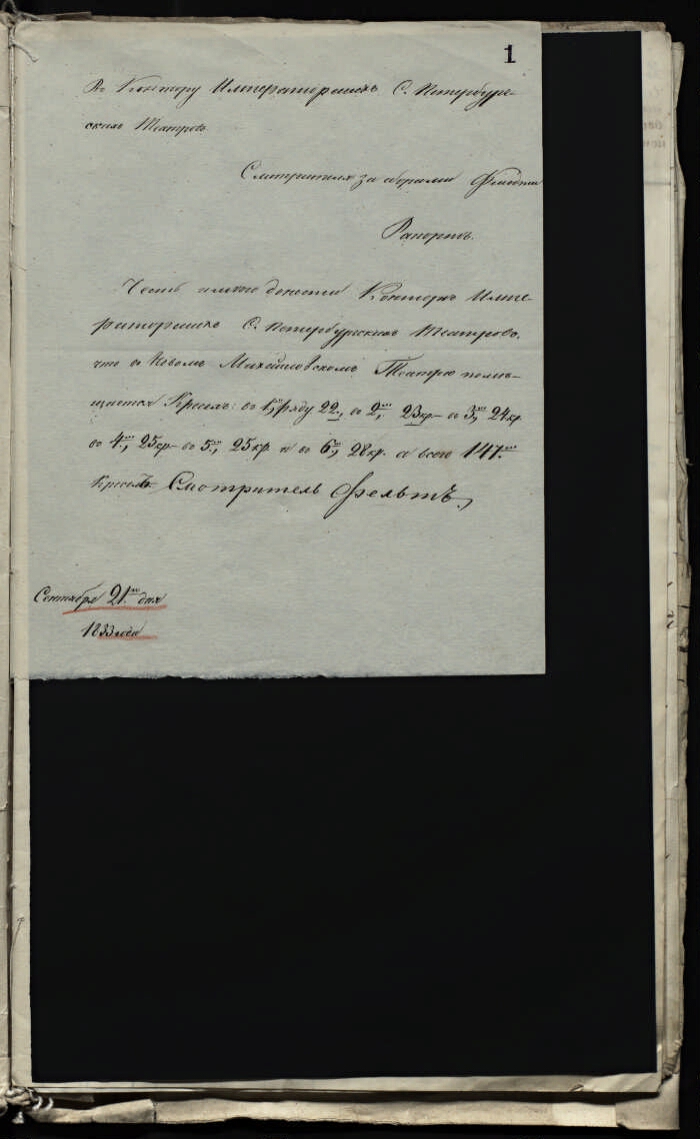 1
Въ Контору Императорскихъ С. Петербург-
скихъ Театровъ
Смотрителя за сборами
Рапортъ.
Честь имѣю донести Конторѣ Импе-
раторскихъ С. Петербургскихъ Театровъ,
что въ Новомъ Михайловскомъ Театрѣ помѣ-
щается Креселъ: въ 1мъ ряду 22, во 2мъ, 23кр- въ 3мъ, 24кр.
въ 4мъ, 25кр- въ 5мъ, 25кр. и въ 6мъ, 28кр. а всего 147мъ
Креселъ. Смотритель Фельтъ.
Сентября 21го дня
1833 года